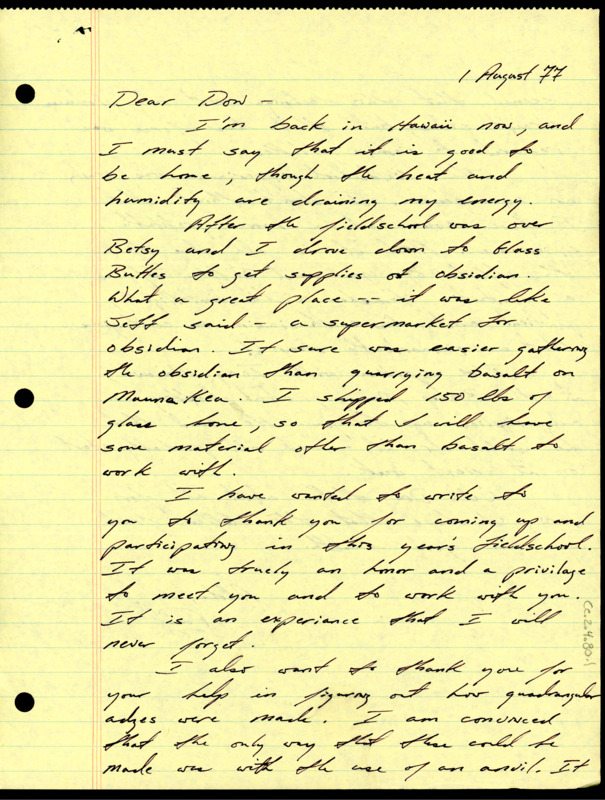 1 August 77
Dear Don -
I'm back in Hawaii now, and
I must say that it is good to
be home, though the heat and
humidity are draining my energy.
After the fieldschool was over
Betsy and I drove down to Glass
Buttes to get supplies of obsidian.
What a great place -- it was like
Jeff said - a supermarket for
obsidian. It sure was easier gathering
the obsidian than quarrying basalt on
Mauna Kea. I shipped 150 lbs of
glass home, so that I will have
some material other than basalt to
work with.
I have wanted to write to
you to thank you for coming up and
participating in this year's fieldschool.
It was truely an honor and a privilage
to meet you and to work with you.
It is an experiance that I will
never forget.
I also want to thank you for
your help in figuring out how quadrangular
adzes were made. I am convinced
that the only way that these could be
made was with the use of an anvil. It
Cc.2.4.80-1